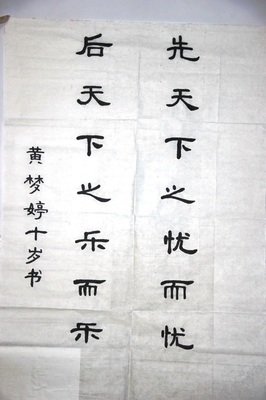 先天下之忧而忧
后天下之乐而乐
黄梦婷十岁书